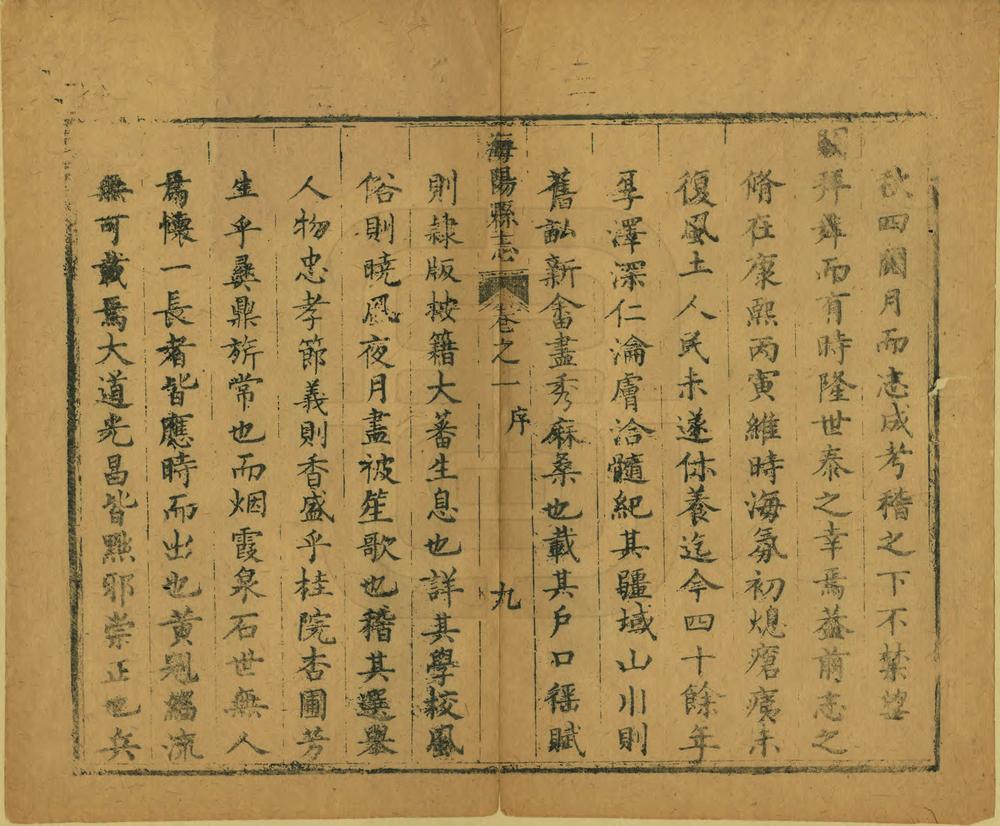 秋四閱月而志成考稽之下不禁望
闕拜舞而有時隆世泰之幸焉蓋前志之
脩在康熙丙寅維時海氛初熄瘡痍未
復風土人民未遂休養迄今四十餘年
孚澤深仁淪膚洽髓紀其疆域山川則
舊畝新畬盡秀麻桑也載其戶口徭賦
海陽縣志 卷之一 序 九
則隸版按籍大蕃生息也詳其學校風
俗則曉風夜月盡被笙歌也稽其選舉
人物忠孝節義則香盛乎桂院杏圃芳
生乎彞鼎旂常也而烟霞泉石世無人
焉懐一長者皆應時而出也黃冠緇流
無可載焉大道光昌皆黜邪崇正也兵